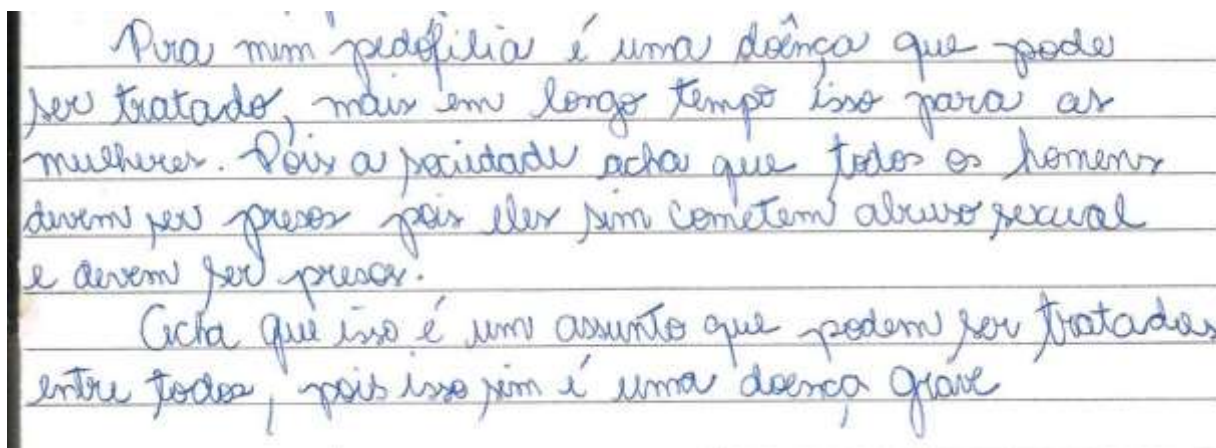 Pra mim pedofilia é uma doênça que pode
ser tratado, mais em longo tempo isso para as
mulheres. Pois a sociedade acha que todos os homens
devem ser presos pois eles sim cometem abuso sexual
e devem ser presos.
Acha que isso é um assunto que podem ser tratadas
entre todos, pois isso sim é uma doença grave